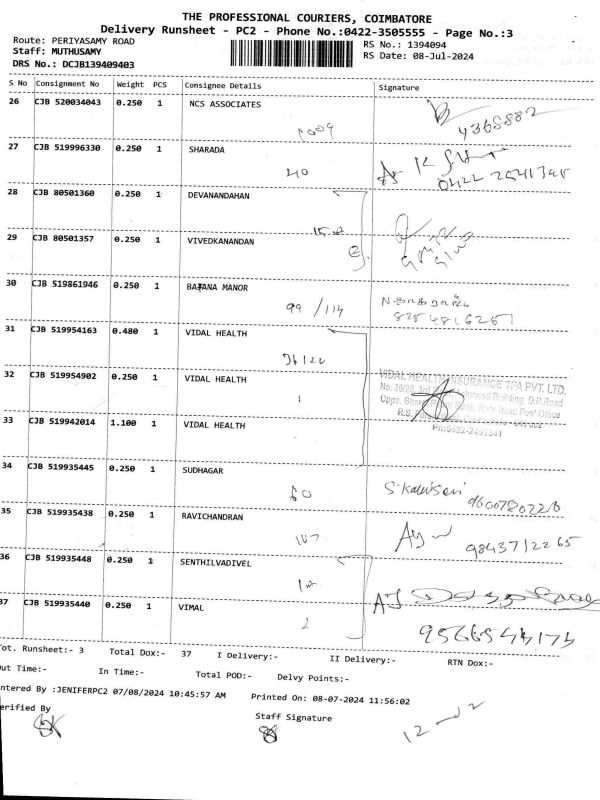 THE PROFESSIONAL COURIERS, COIMBATORE
Delivery Runsheet - PC2 - Phone No.:0422-3505555 - Page No.:3
Route: PERIYASAMY ROAD
Staff: MUTHUSAMY
DRS No.: DCJB139409403
RS No.: 1394094
RS Date: 08-Jul-2024
S No Consignment No Weight PCS Consignee Details Signature
26 CJB 520034043 0.250 1 NCS ASSOCIATES
4368882
27 CJB 519996330 0.250 1 SHARADA
40
0422 2541745
28 CJB 80501360 0.250 1 DEVANANDAHAN
29 CJB 80501357 0.250 1 VIVEDKANANDAN
30 CJB 519861946 0.250 1 BAJANA MANOR
99 / 114
8254816257
31 CJB 519954163 0.480 1 VIDAL HEALTH
36/20
32 CJB 519954902 0.250 1 VIDAL HEALTH
VIDAL HEALTH INSURANCE TPA PVT. LTD.
33 CJB 519942014 1.100 1 VIDAL HEALTH
34 CJB 519935445 0.250 1 SUDHAGAR
60
9600780228
35 CJB 519935438 0.250 1 RAVICHANDRAN
107
9843712265
36 CJB 519935448 0.250 1 SENTHILVADIVEL
37 CJB 519935440 0.250 1 VIMAL
2
Tot. Runsheet:- 3 Total Dox:- 37 I Delivery:- II Delivery:- RTN Dox:-
Out Time:- In Time:- Total POD:- Delvy Points:-
Entered By :JENIFERPC2 07/08/2024 10:45:57 AM Printed On: 08-07-2024 11:56:02
Verified By Staff Signature